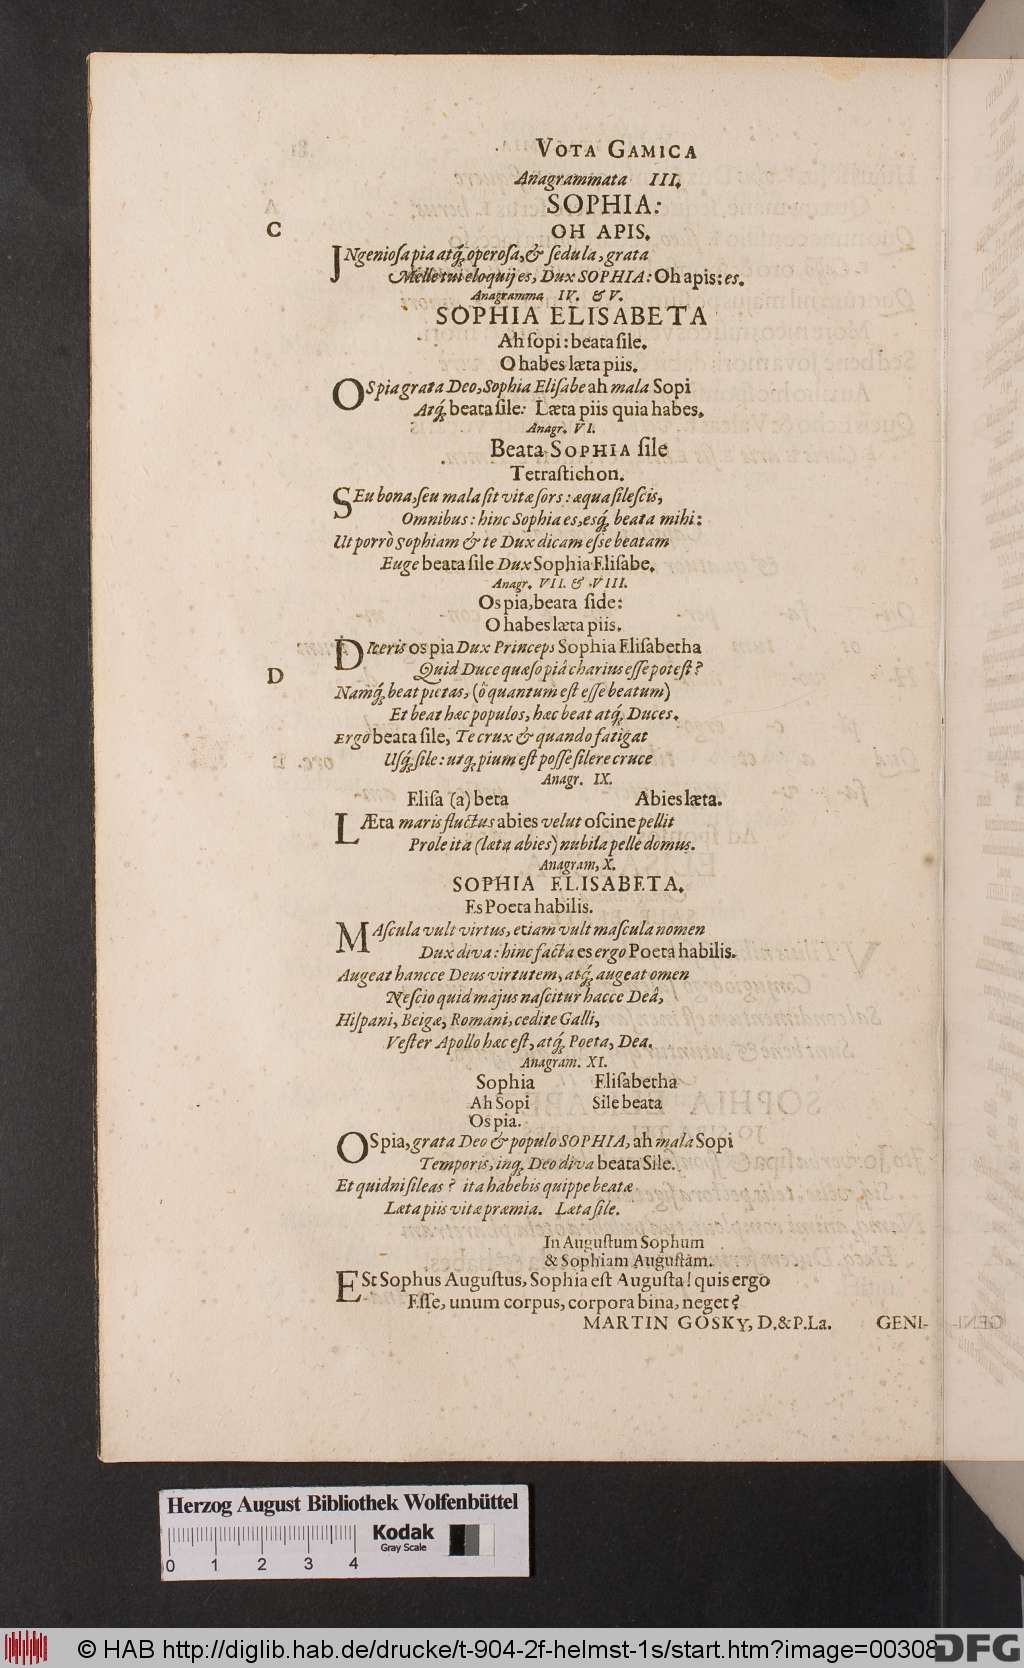 VOTA GAMICA
Anagrammata III.
SOPHIA:
C
OH APIS.
INgeniosa pia atq́; operosa, & sedula, grata
Melle tui eloquij es, Dux SOPHIA: Oh apis: es.
Anagramma IV. & V.
SOPHIA ELISABETA
Ah sopi: beata sile.
O habes læta piis.
OS pia grata Deo, Sophia Elisabe ah mala Sopi
Atq́; beata sile: Læta piis quia habes.
Anagr. VI.
Beata SOPHIA sile
Tetrastichon.
SEu bona, seu mala sit vitæ sors: æqua silescis,
Omnibus: hinc Sophia es, esq́; beata mihi:
Ut porrò sophiam & te Dux dicam esse beatam
Euge beata sile Dux Sophia Elisabe.
Anagr. VII. & VIII.
Os pia, beata side:
O habes læta piis.
DIceris os pia Dux Princeps Sophia Elisabetha
Quid Duce quæso piâ charius esse potest?
D
Namq́; beat pietas, (ô quantum est esse beatum)
Et beat hæc populos, hæc beat atq́; Duces.
Ergò beata sile, Te crux & quando fatigat
Usq́; sile: utq; pium est posse silere cruce
Anagr. IX.
Elisa (a) beta Abies læta.
LÆta maris fluctus abies velut oscine pellit
Prole ita (læta abies) nubila pelle domus.
Anagram, X.
SOPHIA ELISABETA.
Es Poeta habilis.
MAscula vult virtus, etiam vult mascula nomen
Dux diva: hinc facta es ergo Poeta habilis.
Augeat hancce Deus virtutem, atq́; augeat omen
Nescio quid majus nascitur hacce Deâ,
Hispani, Belgæ, Romani, cedite Galli,
Vester Apollo hæc est, atq́; Poeta, Dea.
Anagram. XI.
Sophia Elisabetha
Ah Sopi Sile beata
Os pia.
OS pia, grata Deo & populo SOPHIA, ah mala Sopi
Temporis, inq; Deo diva beata Sile.
Et quidni sileas? ita habebis quippe beatæ
Læta piis vitæ præmia. Læta sile.
In Augustum Sophum
& Sophiam Augustam.
ESt Sophus Augustus, Sophia est Augusta! quis ergo
Esse, unum corpus, corpora bina, neget?
MARTIN GOSKY, D.&P.La. GENI-
Herzog August Bibliothek Wolfenbüttel
Kodak
Gray Scale
0 1 2 3 4
© HAB http://diglib.hab.de/drucke/t-904-2f-helmst-1s/start.htm?image=00308
DFG